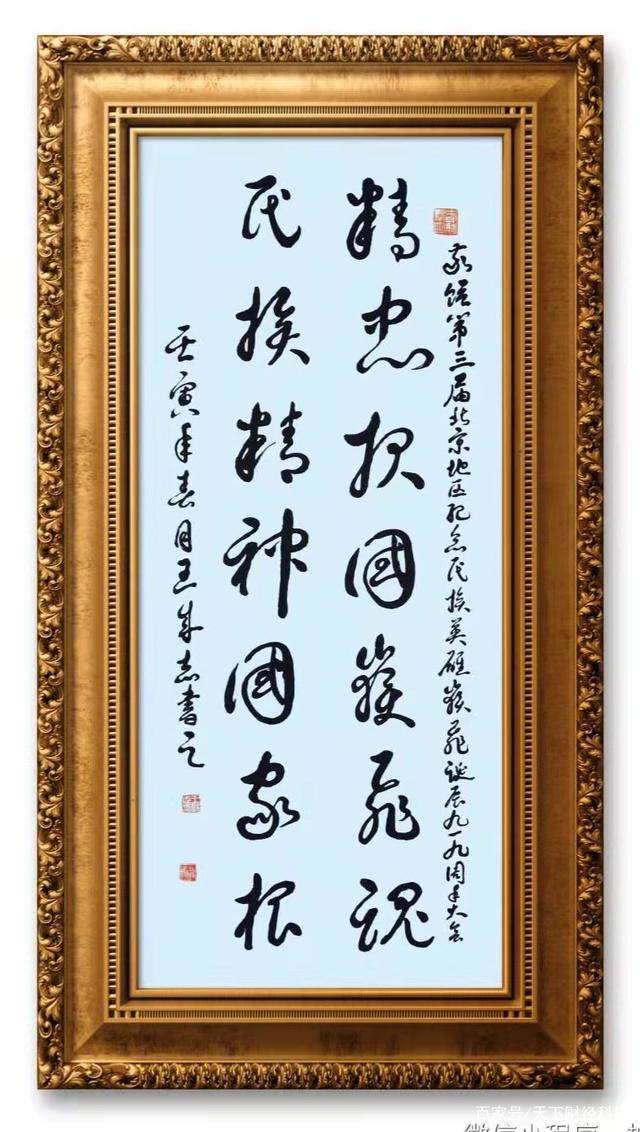 敬贈第三届北京地区纪念民族英雄嶽飛诞辰九一九周年大会
精忠报國嶽飛魂
民族精神國家根
壬寅年春月王成志書
百家号/天下财经科
微信小程序